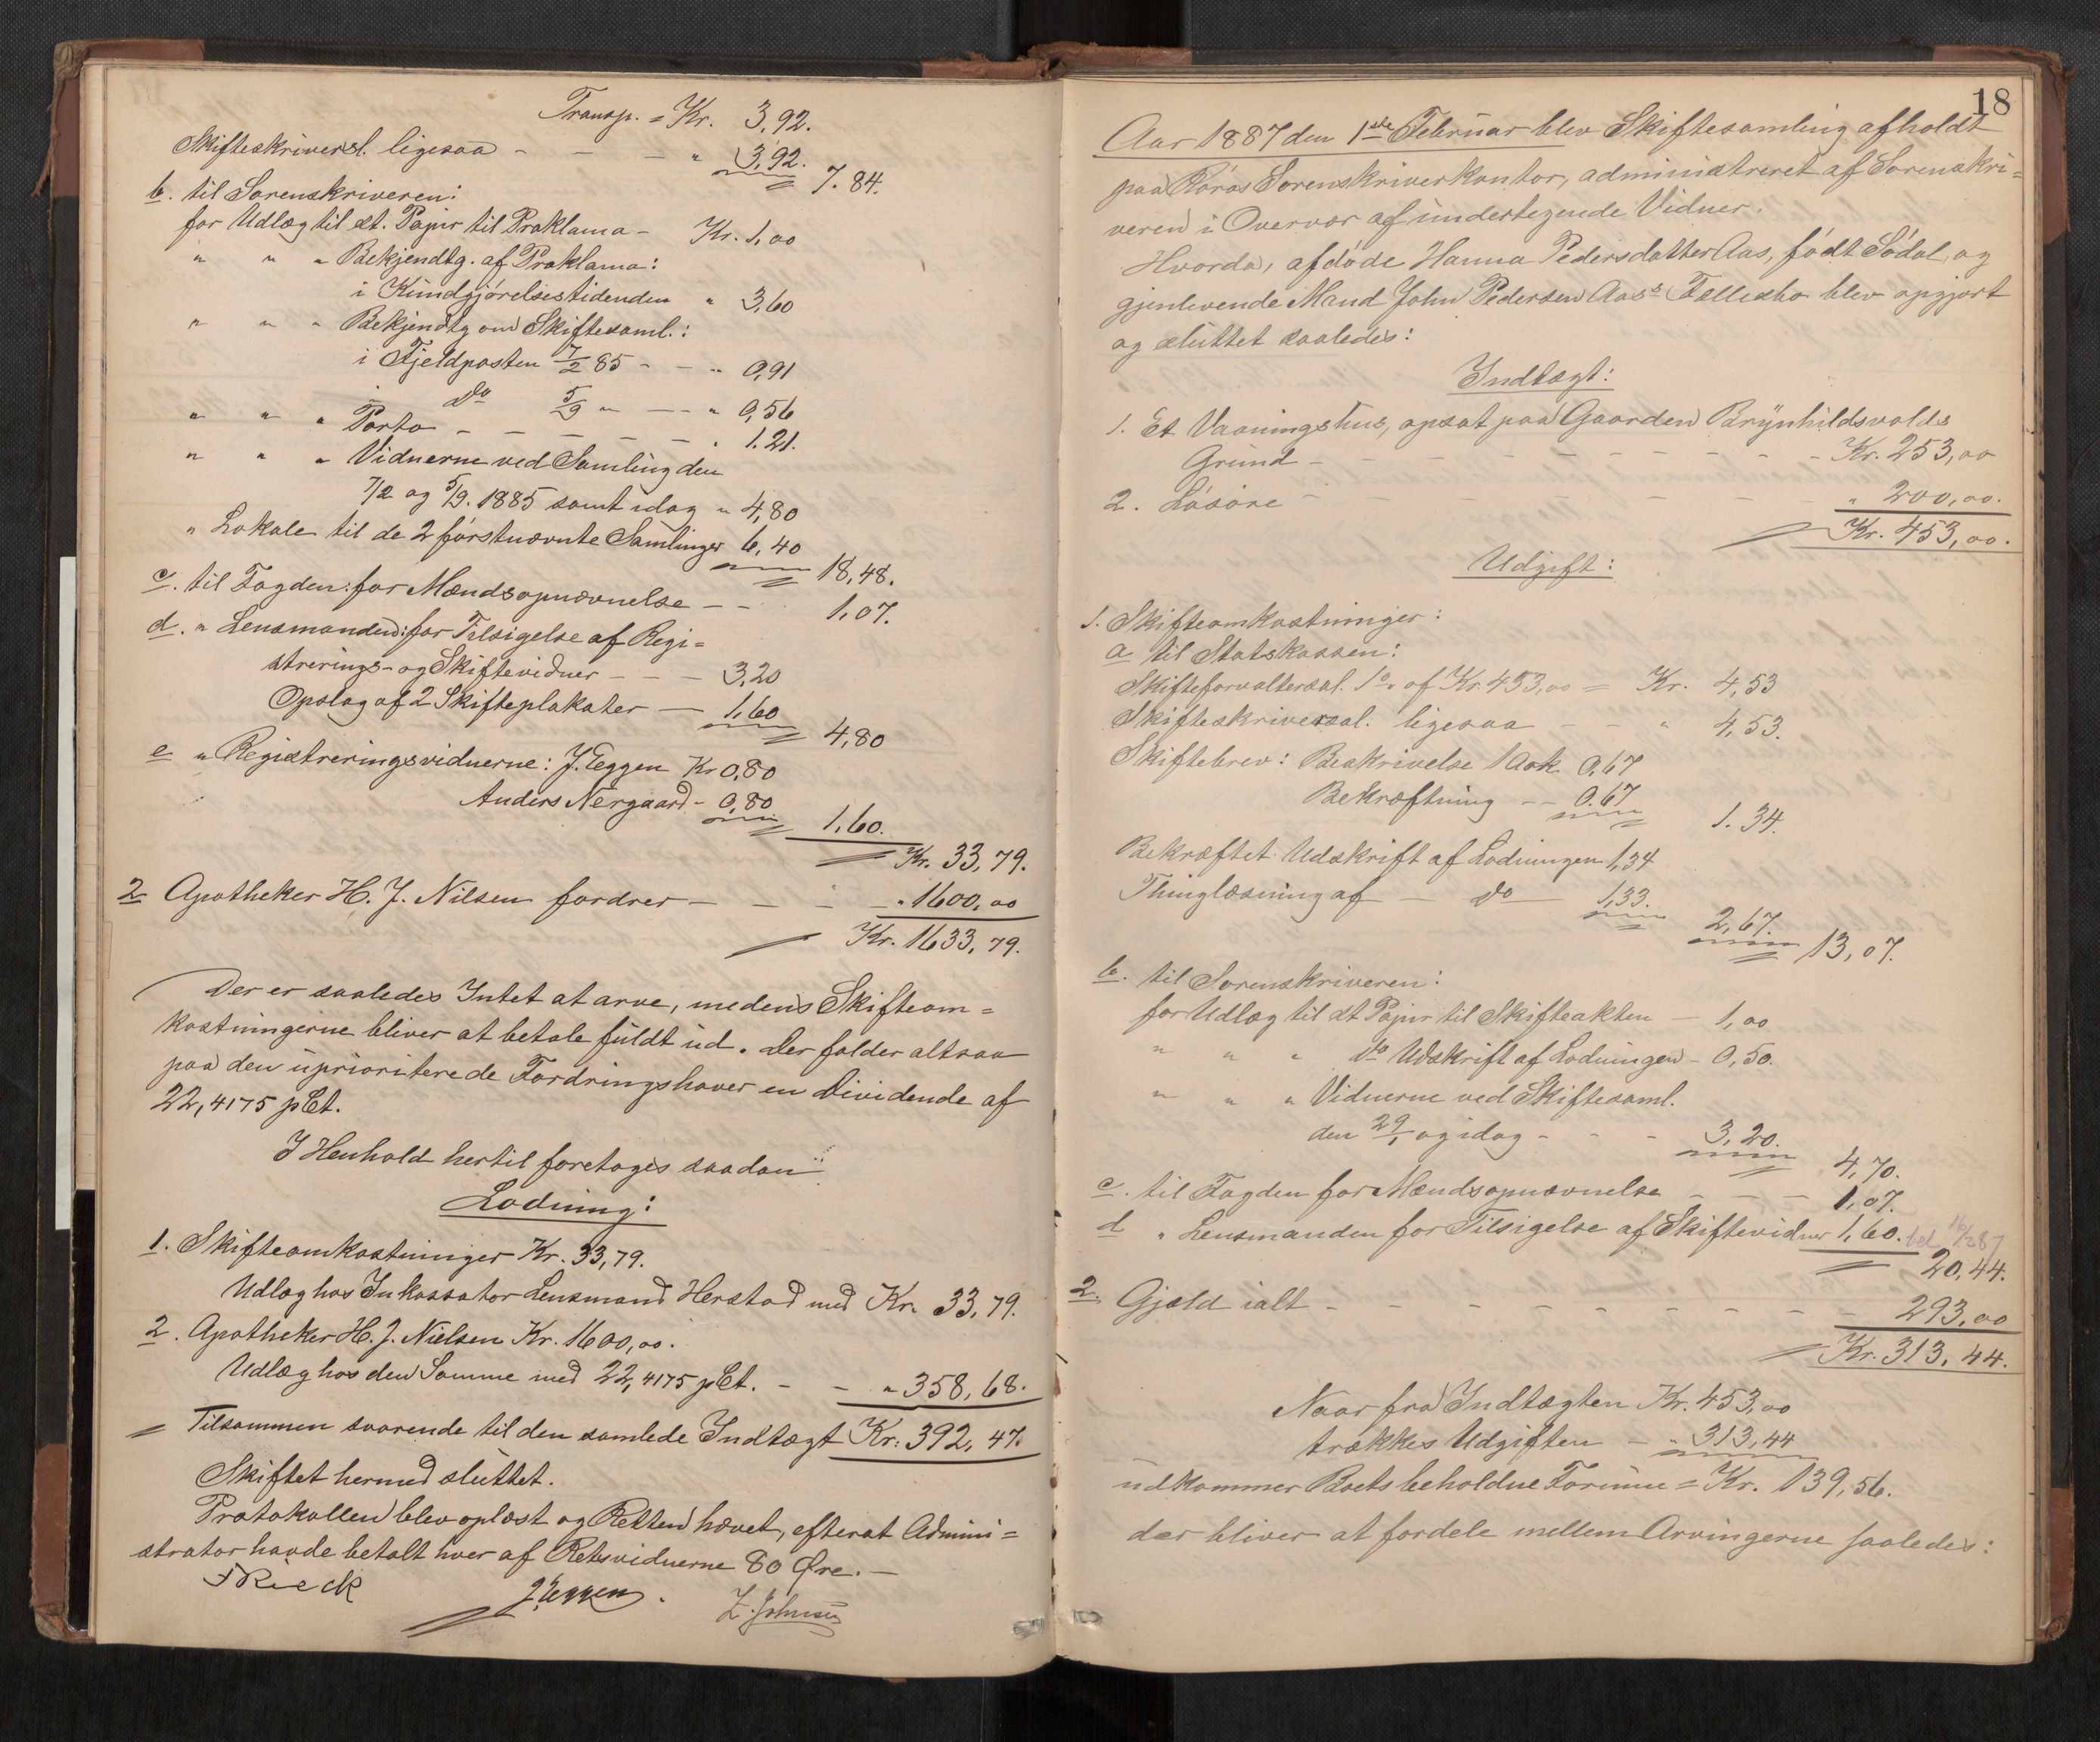 Transp. = Kr. 3,92.
Skifteskriversl. ligesaa - - - " 3,92. 7.84.
b. til Sorenskriveren:
for Udlæg til st. Papir til Proklama - Kr. 1,00
" " " Bekjendtg. af Proklama:
i Kundgjørelsestidenden " 3,60
" " " Bekjendtg om Skiftesaml.:
i Fjeldposten 7/2 85 - - " 0,91
do 5/9 " - - " 0,56
" " " Porto - - - - - - " 1.21.
" " " Vidnerne ved Samling den
7/2 og 5/9. 1885 samt idag " 4,80
" Lokale til de 2 førstnævnte Samlinger 6,40 18,48.
c. til Fogden: for Mændsopnævnelse - - 1,07.
d. " Lensmanden: for Tilsigelse af Regi=
strerings- og Skiftevidner - - - 3,20
Opslag af 2 Skifteplakater - 1,60 4,80
e " Registreringsvidnerne: J. Eggen Kr 0,80
Anders Nergaard - 0,80 1,60.
Kr. 33,79.
2 Apotheker H. J. Nilsen fordrer - - - - " 1600,00
Kr. 1633,79.
Der er saaledes Intet at arve, medens Skifteom=
kostningerne bliver at betale fuldt ud. Der falder altsaa
paa den uprioriterede Fordringshaver en Dividende af
22,4175 pCt.
I Henhold hertil foretoges saadan
Lodning:
1. Skifteomkostninger Kr. 33,79.
Udlæg hos Inkassator Lensmand Herstad med Kr. 33,79.
2. Apotheker H. J. Nielsen Kr. 1600,00.
Udlæg hos den Samme med 22,4175 pCt. - - " 358,68.
= Tilsammen svarende til den samlede Indtægt Kr. 392,47.
Skiftet hermed sluttet.
Protokollen blev oplæst og Retten hævet, efterat Admini=
strator havde betalt hver af Retsvidnerne 80 Øre. -
Rieck JEggen. Z. Johnsen
18
Aar 1887 den 1ste Februar blev Skiftesamling afholdt
paa Røros Sorenskriverkontor, administreret af Sorenskri=
veren i Overvær af undertegnede Vidner.
Hvorda, afdøde Hanna Pedersdatter Aas, født Sødal, og
gjenlevende Mand John Pedersen Aas's Fællesbo blev opgjort
og sluttet saaledes:
Indtægt:
1. Et Vaaningshus, opsat paa Gaarden Brynhildsvolds
Grund - - - - - - - - - Kr. 253,00
2. Løsøre - - - - - - - " 200,00.
Kr. 453,00.
Udgift:
1. Skifteomkostninger:
a til Statskassen:
Skifteforvaltersal. 1% af Kr. 453,00 = Kr. 4,53
Skifteskriversal. ligesaa - - " 4,53.
Skiftebrev: Beskrivelse 1 Ark 0,67
Bekræftning - - 0.67 1.34.
Bekræftet Udskrift af Lodningen 1,34
Thinglæsning af - do - 1,33. 2,67. 13,07.
b. til Sorenskriveren:
for Udlæg til st Papir til Skifteakten - 1,00
" " " do Udskrift af Lodningen - 0,50.
" " " Vidnerne ved Skiftesaml.
den 29/1 og idag - - - 3,20. 4,70.
c. til Fogden for Mændsopnævnelse - - - 1,07.
d " Lensmanden for Tilsigelse af Skiftevidner 1,60.
20,44.
2. Gjæld ialt - - - - - - - - - 293,00
Kr. 313,44.
Naar fra Indtægten Kr. 453,00
trækkes Udgiften - " 313,44
udkommer Boets beholdne Formue = Kr. 139,56.
der bliver at fordele mellem Arvingerne saaledes: